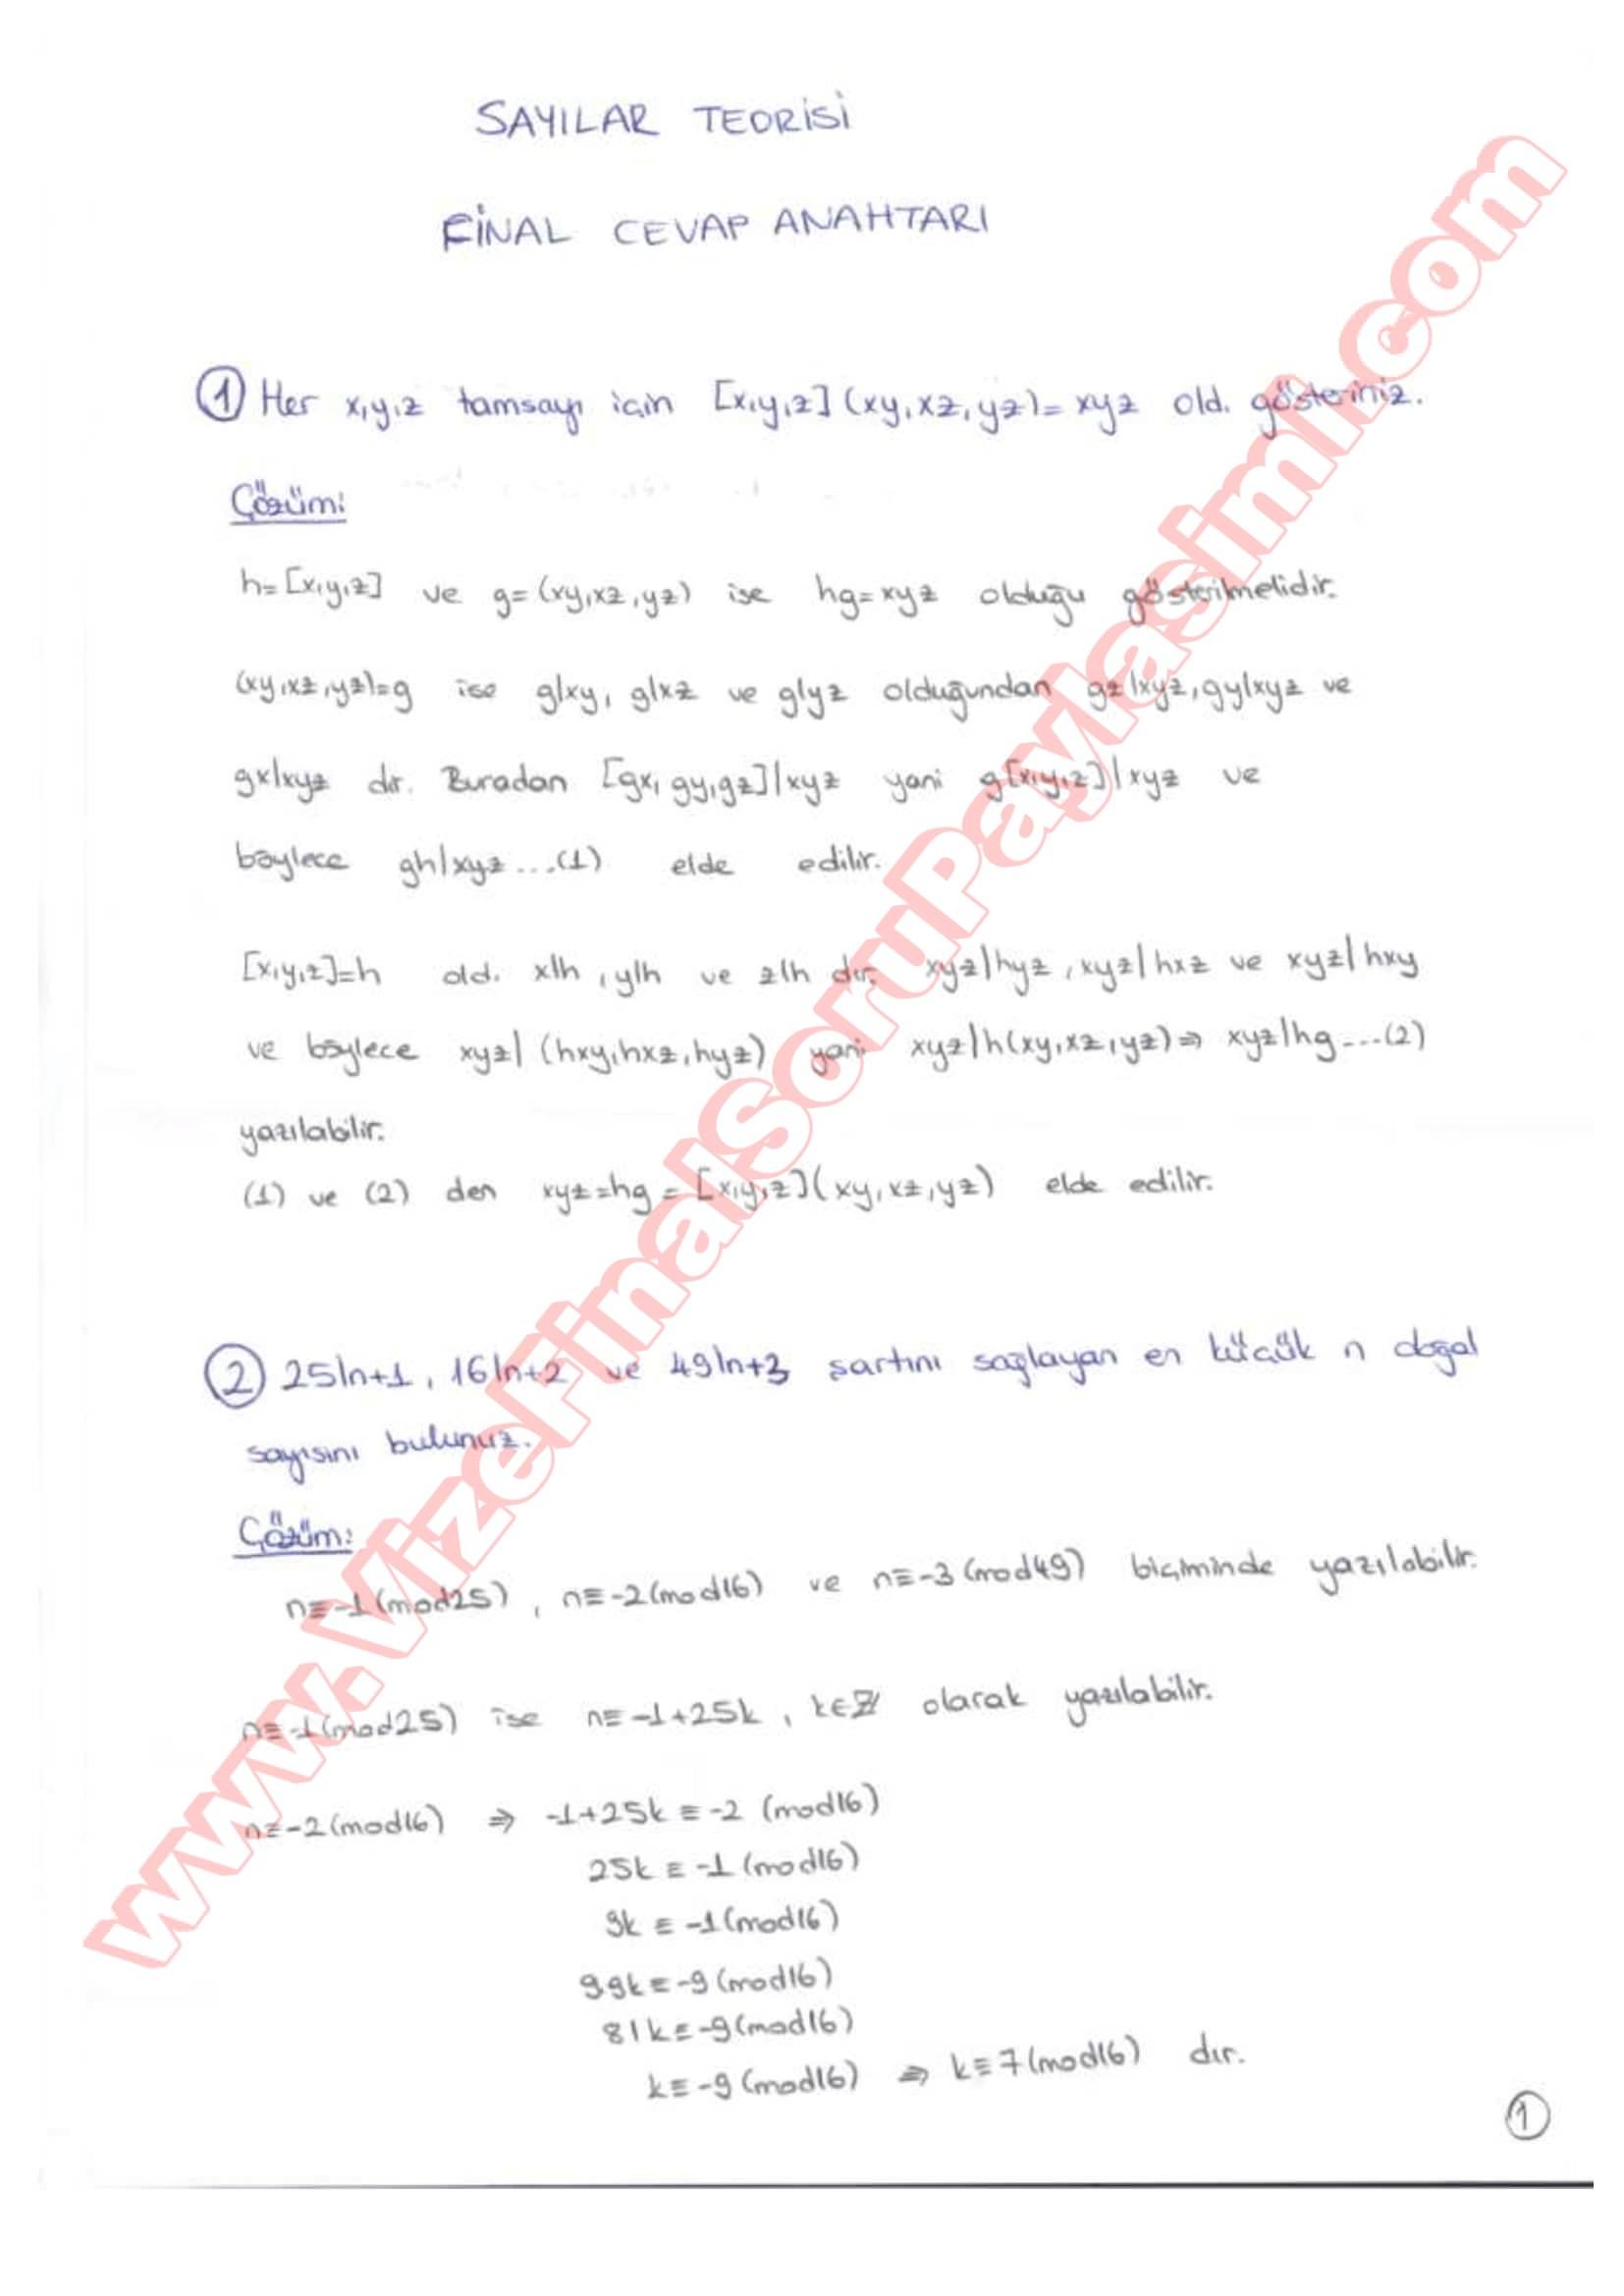 SAYILAR TEORİSİ
FİNAL CEVAP ANAHTARI
① Her x,y,z tamsayı için [x,y,z](xy,xz,yz)=xyz old. gösteriniz.
Çözüm:
h=[x,y,z] ve g=(xy,xz,yz) ise hg=xyz olduğu gösterilmelidir.
(xy,xz,yz)=g ise g|xy, g|xz ve g|yz olduğundan gz|xyz, gy|xyz ve
gx|xyz dir. Buradan [gx, gy, gz]|xyz yani g[x,y,z]|xyz ve
böylece gh|xyz...(1) elde edilir.
[x,y,z]=h old. x|h, y|h ve z|h dır. xyz|hyz, xyz|hxz ve xyz|hxy
ve böylece xyz| (hxy,hxz,hyz) yani xyz|h(xy,xz,yz)⇒ xyz|hg...(2)
yazılabilir.
(1) ve (2) den xyz=hg=[x,y,z](xy,xz,yz) elde edilir.
② 25|n+1, 16|n+2 ve 49|n+3 şartını sağlayan en küçük n doğal
sayısını bulunuz.
Çözüm:
n≡-1(mod25), n≡-2(mod16) ve n≡-3(mod49) biçiminde yazılabilir.
n≡-1(mod25) ise n≡-1+25k, k∈ℤ olarak yazılabilir.
n≡-2(mod16) ⇒ -1+25k≡-2 (mod16)
25k≡-1(mod16)
9k≡-1(mod16)
9.9k≡-9(mod16)
81k≡-9(mod16)
k≡-9(mod16) ⇒ k≡7(mod16) dır.
①
www.VizeFinalSoruPaylasimi.com